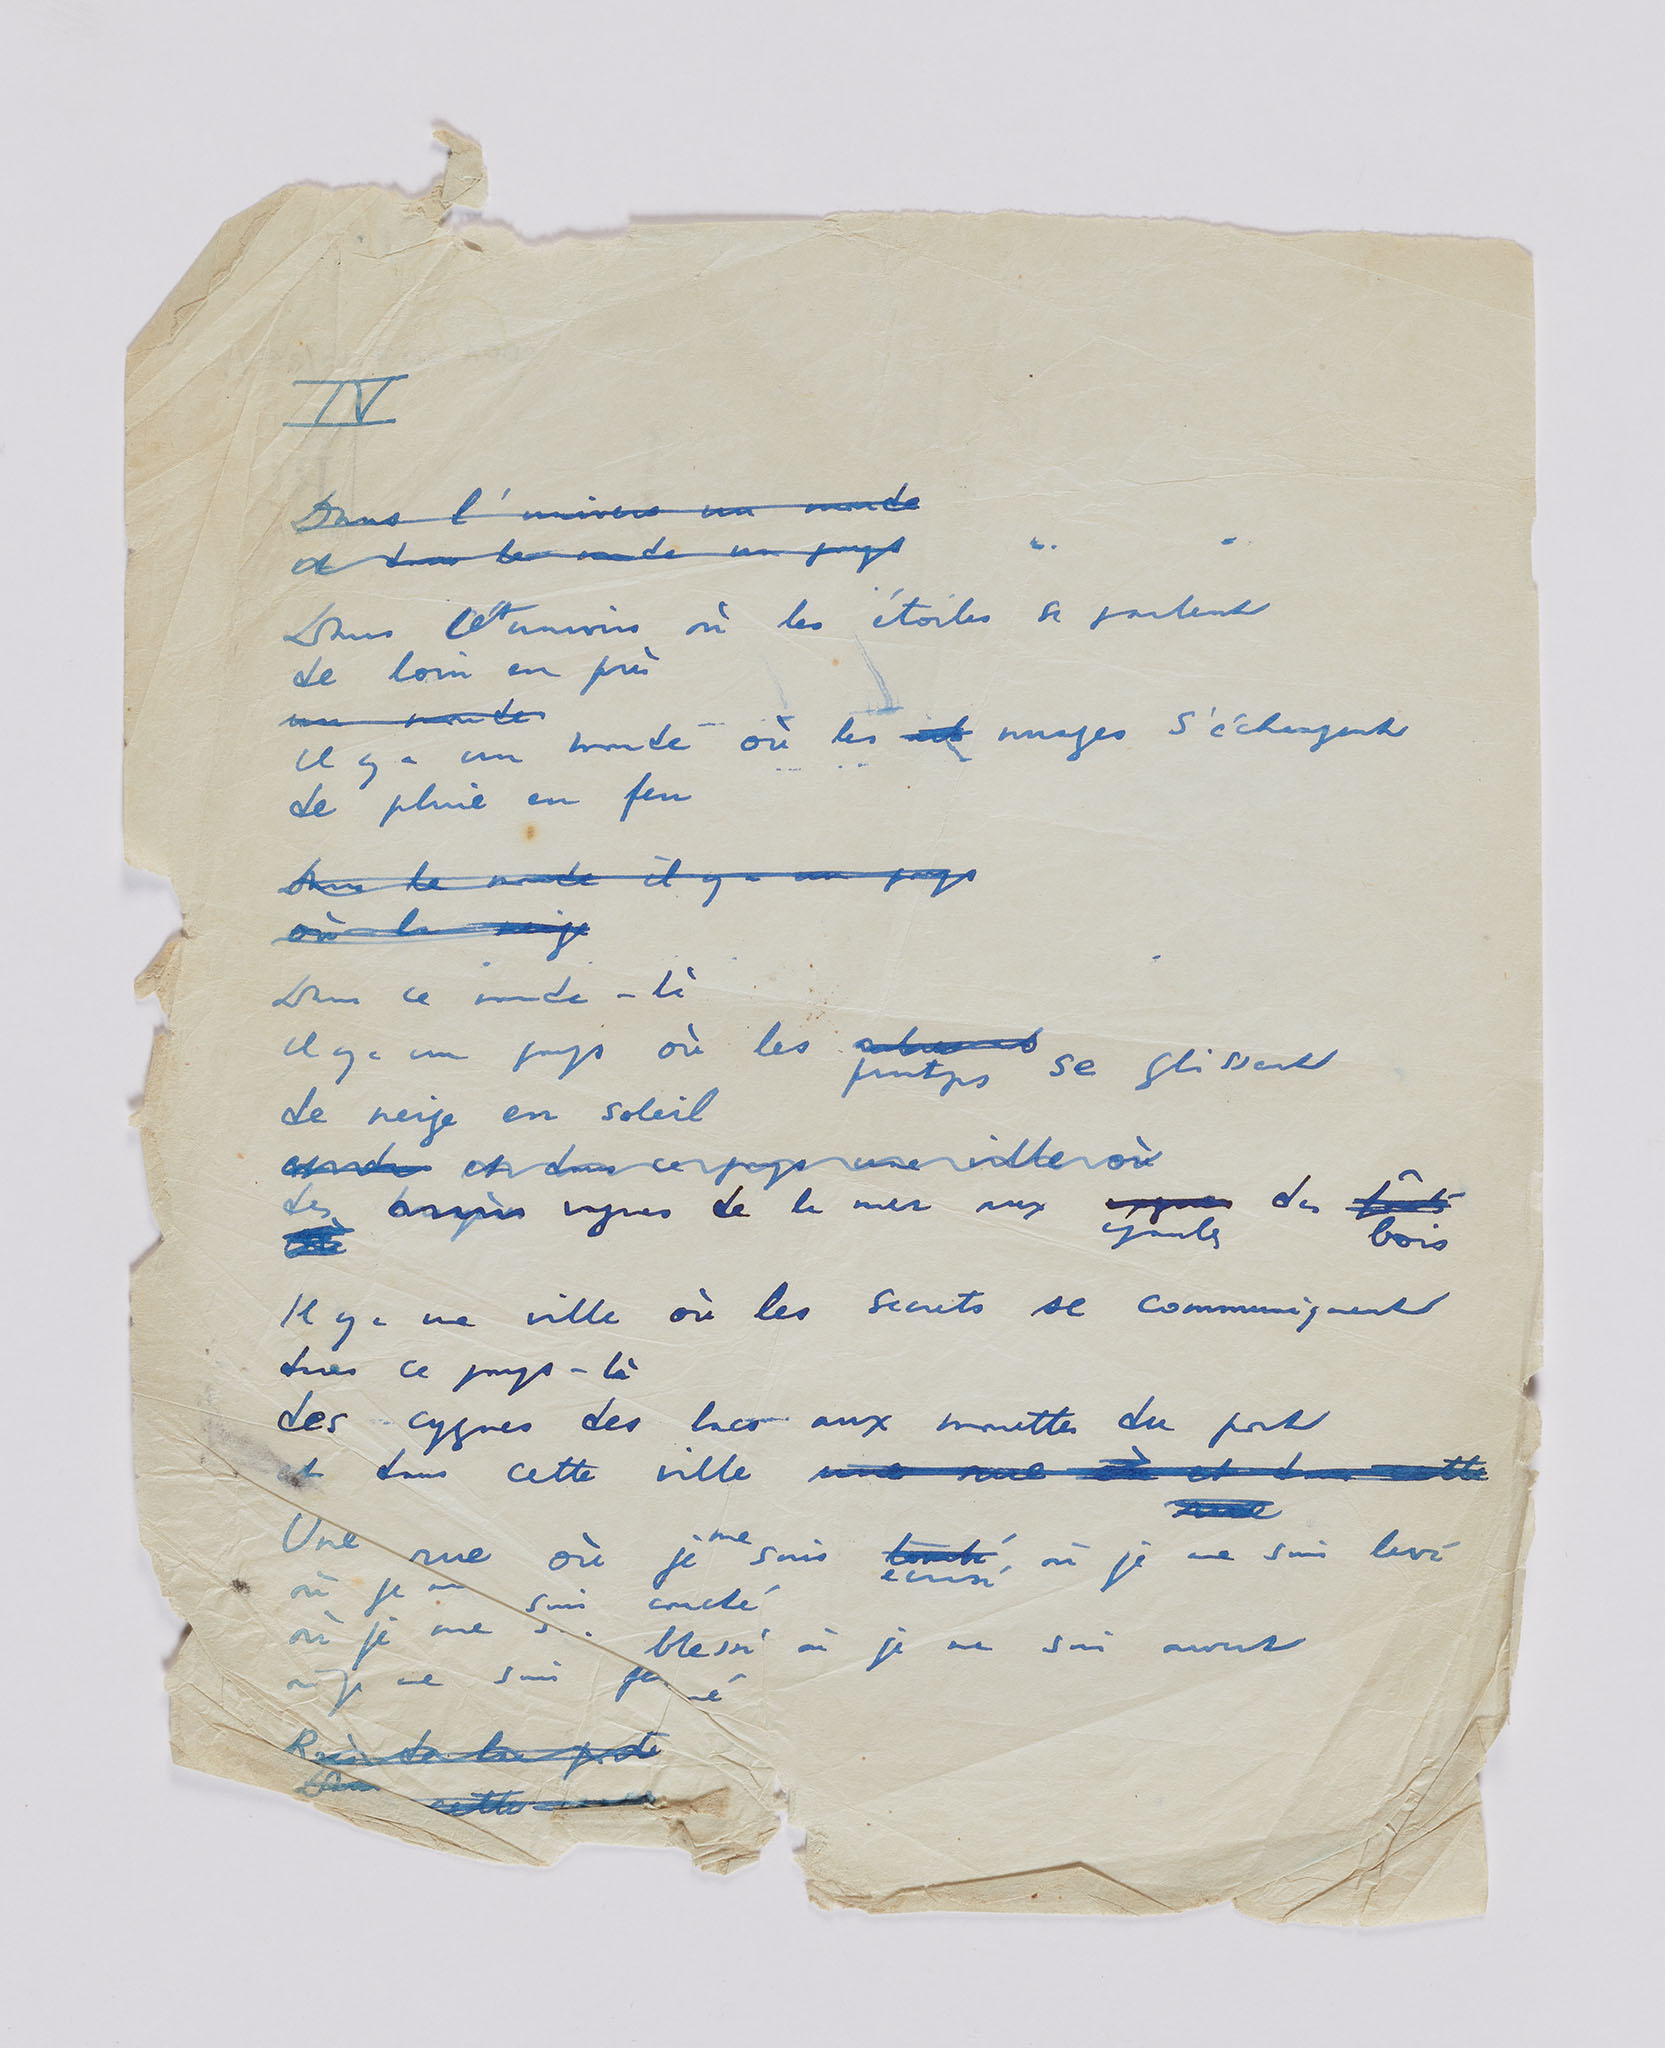 IV
Dans l'univers un monde
et dans le monde un pays " "
Dans cet univers où les étoiles se parlent
de loin en près
un monde
il y a un monde où les nuages s'échangent
de pluie en feu
Dans le monde il y a un pays
où la neige
Dans ce monde-là
il y a un pays où les se glissent
printps
de neige en soleil
et dans ce pays une ville où
des vagues de la mer aux des forêts
bois
Il y a une ville où les secrets se communiquent
dans ce pays-là
des cygnes des lacs aux mouettes du port
et dans cette ville une rue où et dans cette
rue
Une rue où je me suis tombé, où je me suis levé
écrasé
où je me suis couché
où je me s... blessé où je me suis ouvert
où je me suis
cette